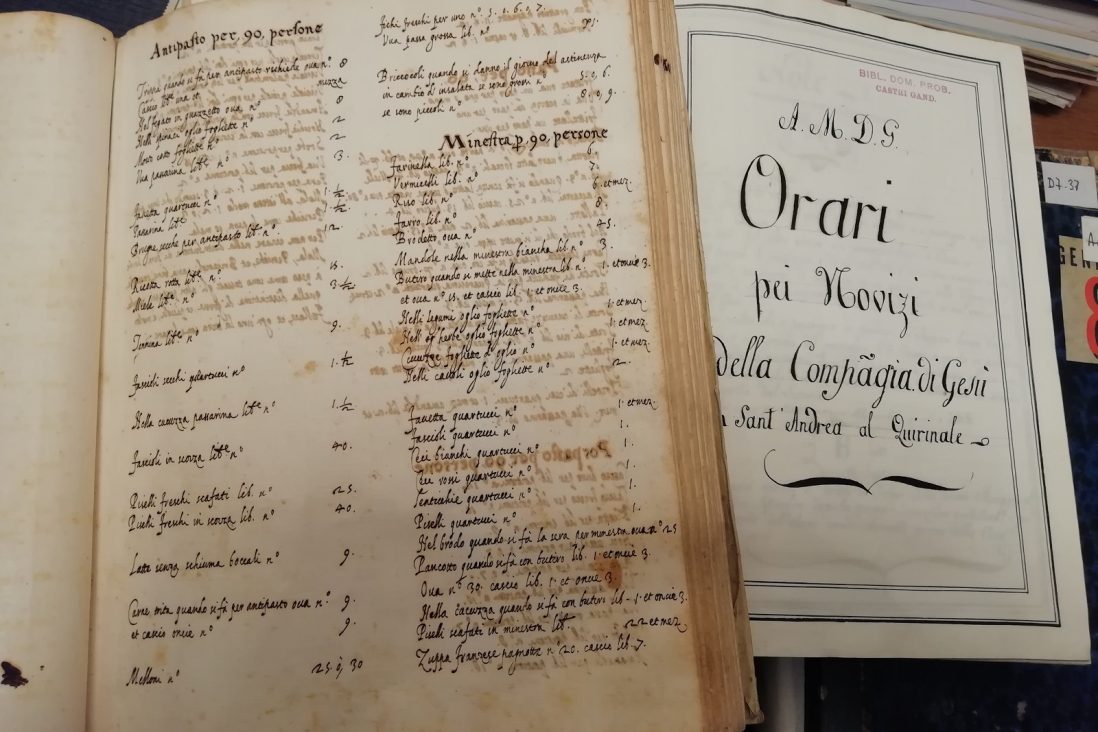 Antipasto per, 90, persone
Trippa quando si fa per antipasto richiede oua nº. 8
Cascio libre una et mezza
Nel fegato in guazzetto oua nº. 8
Nelli spinaci oglio fogliette nº 2
Mosto cotto fogliette nº 2
Vua passarina libre nº 3.
fauetta quartucci nº 1. ½
Panarina libre 1. ½
Brugne secche per antipasto lib. nº 12.
Ricotta libre. nº 15.
Miele libre. nº 3 ½
Tonnina libre nº 9.
fascioli secchi quartucci nº 1. ½
Nella cucuzza passarina libre nº 1. ½
fascioli in scorza libre nº 40.
Piselli freschi scafati lib. nº 25.
Piselli freschi in scorza lib. nº 40.
Latte senza schiuma boccali nº 9.
Carne trita quando si fà per antipasto oua nº. 9.
et cascio oncie nº 9.
Melloni nº 25. ò, 30
fichi freschi per uno nº 5. o. 6. o, 7.
Vua passa grossa lib. nº
Briccocoli quando si danno il giorno del astinenza
in cambio d'insalata se sono grossi nº 5. o, 6.
se sono piccoli nº 8. o, 9.
Minestra p. 90, persone
farinella lib. nº 6.
Vermicelli lib. nº 7.
Riso lib. nº 6. et mez.
farro. lib. nº 8.
Brodetto oua nº 45.
Mandole nella minestra biancha lib. nº 3.
Butiro quando si mette nella minestra lib. nº 1. et oncie 3.
et oua nº 15. et cascio lib. 1. et oncie 3.
Nelli legumi oglio fogliette nº 1. et mez.
Nell herbe oglio fogliette nº 1. et mez.
Cucuzze fogliette d'oglio nº 1. et mez.
Nelli cauoli oglio fogliette nº 2.
fauetta quartucci nº 1. et mez.
fascioli quartucci nº 1.
Ceci bianchi quartucci nº 1.
Ceci rossi quartucci nº 1.
Lenticchie quartucci nº 1.
Piselli quartucci nº 1.
Nel brodo quando si fà la sera per minestra oua nº 25
Pancotto quando si fà con butiro lib. 1. et oncie 3.
Oua nº 30. cascio lib. 1. et oncie 3.
Nella cacuzza quando si fà con butiro lib. 1. et oncie 3.
Piselli scafati in minestra libre. 22 et mez
Zuppa franzese pagnotte nº 20. cascio lib. 7.
BIBL. DOM. PROB.
CASTRI GAND.
A. M. D. G.
Orari
pei Novizi
della Compãgia di Gesù
Sant'Andrea al Quirinale
D7.37
GEN